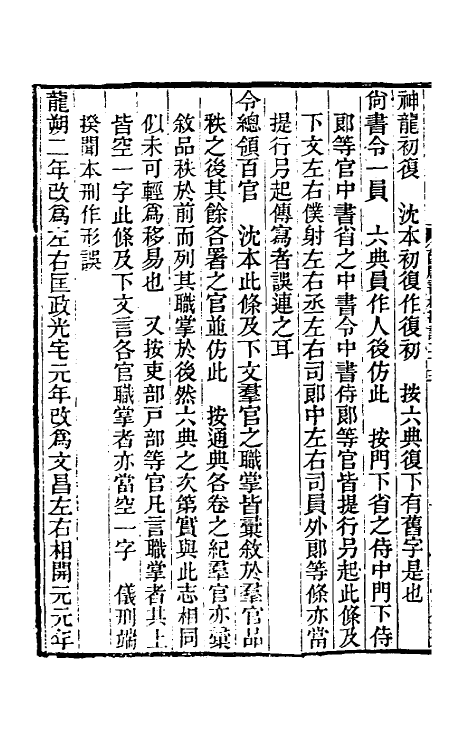 神龍初復　沈本初復作復初　按六典復下有舊字是也
尙書令一員　六典員作人後仿此　按門下省之侍中門下侍
郎等官中書省之中書令中書侍郎等官皆提行另起此條及
下文左右僕射左右丞左右司郎中左右司員外郎等條亦當
提行另起傳寫者誤連之耳
令總領百官　沈本此條及下文羣官之職掌皆彙敘於羣官品
秩之後其餘各署之官並仿此　按通典各卷之紀羣官亦彙
敘品秩於前而列其職掌於後然六典之次第實與此志相同
似未可輕爲移易也　又按吏部戸部等官凡言職掌者其上
皆空一字此條及下文言各官職掌者亦當空一字　儀刑端
揆聞本刑作形誤
龍朔二年改爲左右匡政光宅元年改爲文昌左右相開元元年